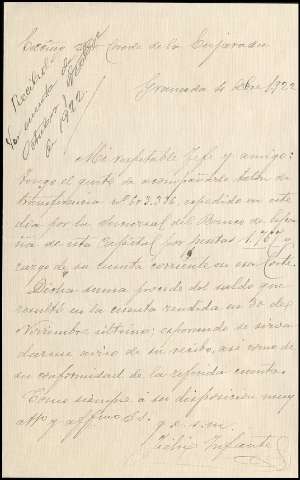 Excmo Sr Conde de la Enjarada
Granada 4 Dbre 1922
Recibida
la cuenta de
Octubre
1922
Mi respetable Jefe y amigo:
tengo el gusto de acompañarle talón de
transferencia nº 603.376, expedido en este
dia por la Sucursal del Banco de Espa-
ña de esta Capital por pesetas 1.767 y
cargo de su cuenta corriente en esa Corte.
Dicha suma procede del saldo que
resultó en la cuenta rendida en 30 de
Noviembre último: esperando se sirva
darme aviso de su recibo, así como de
su conformidad de la referida cuenta.
Como siempre á su disposición muy
atto y affmo S.S.
q.e.s.m.
Félix Infante